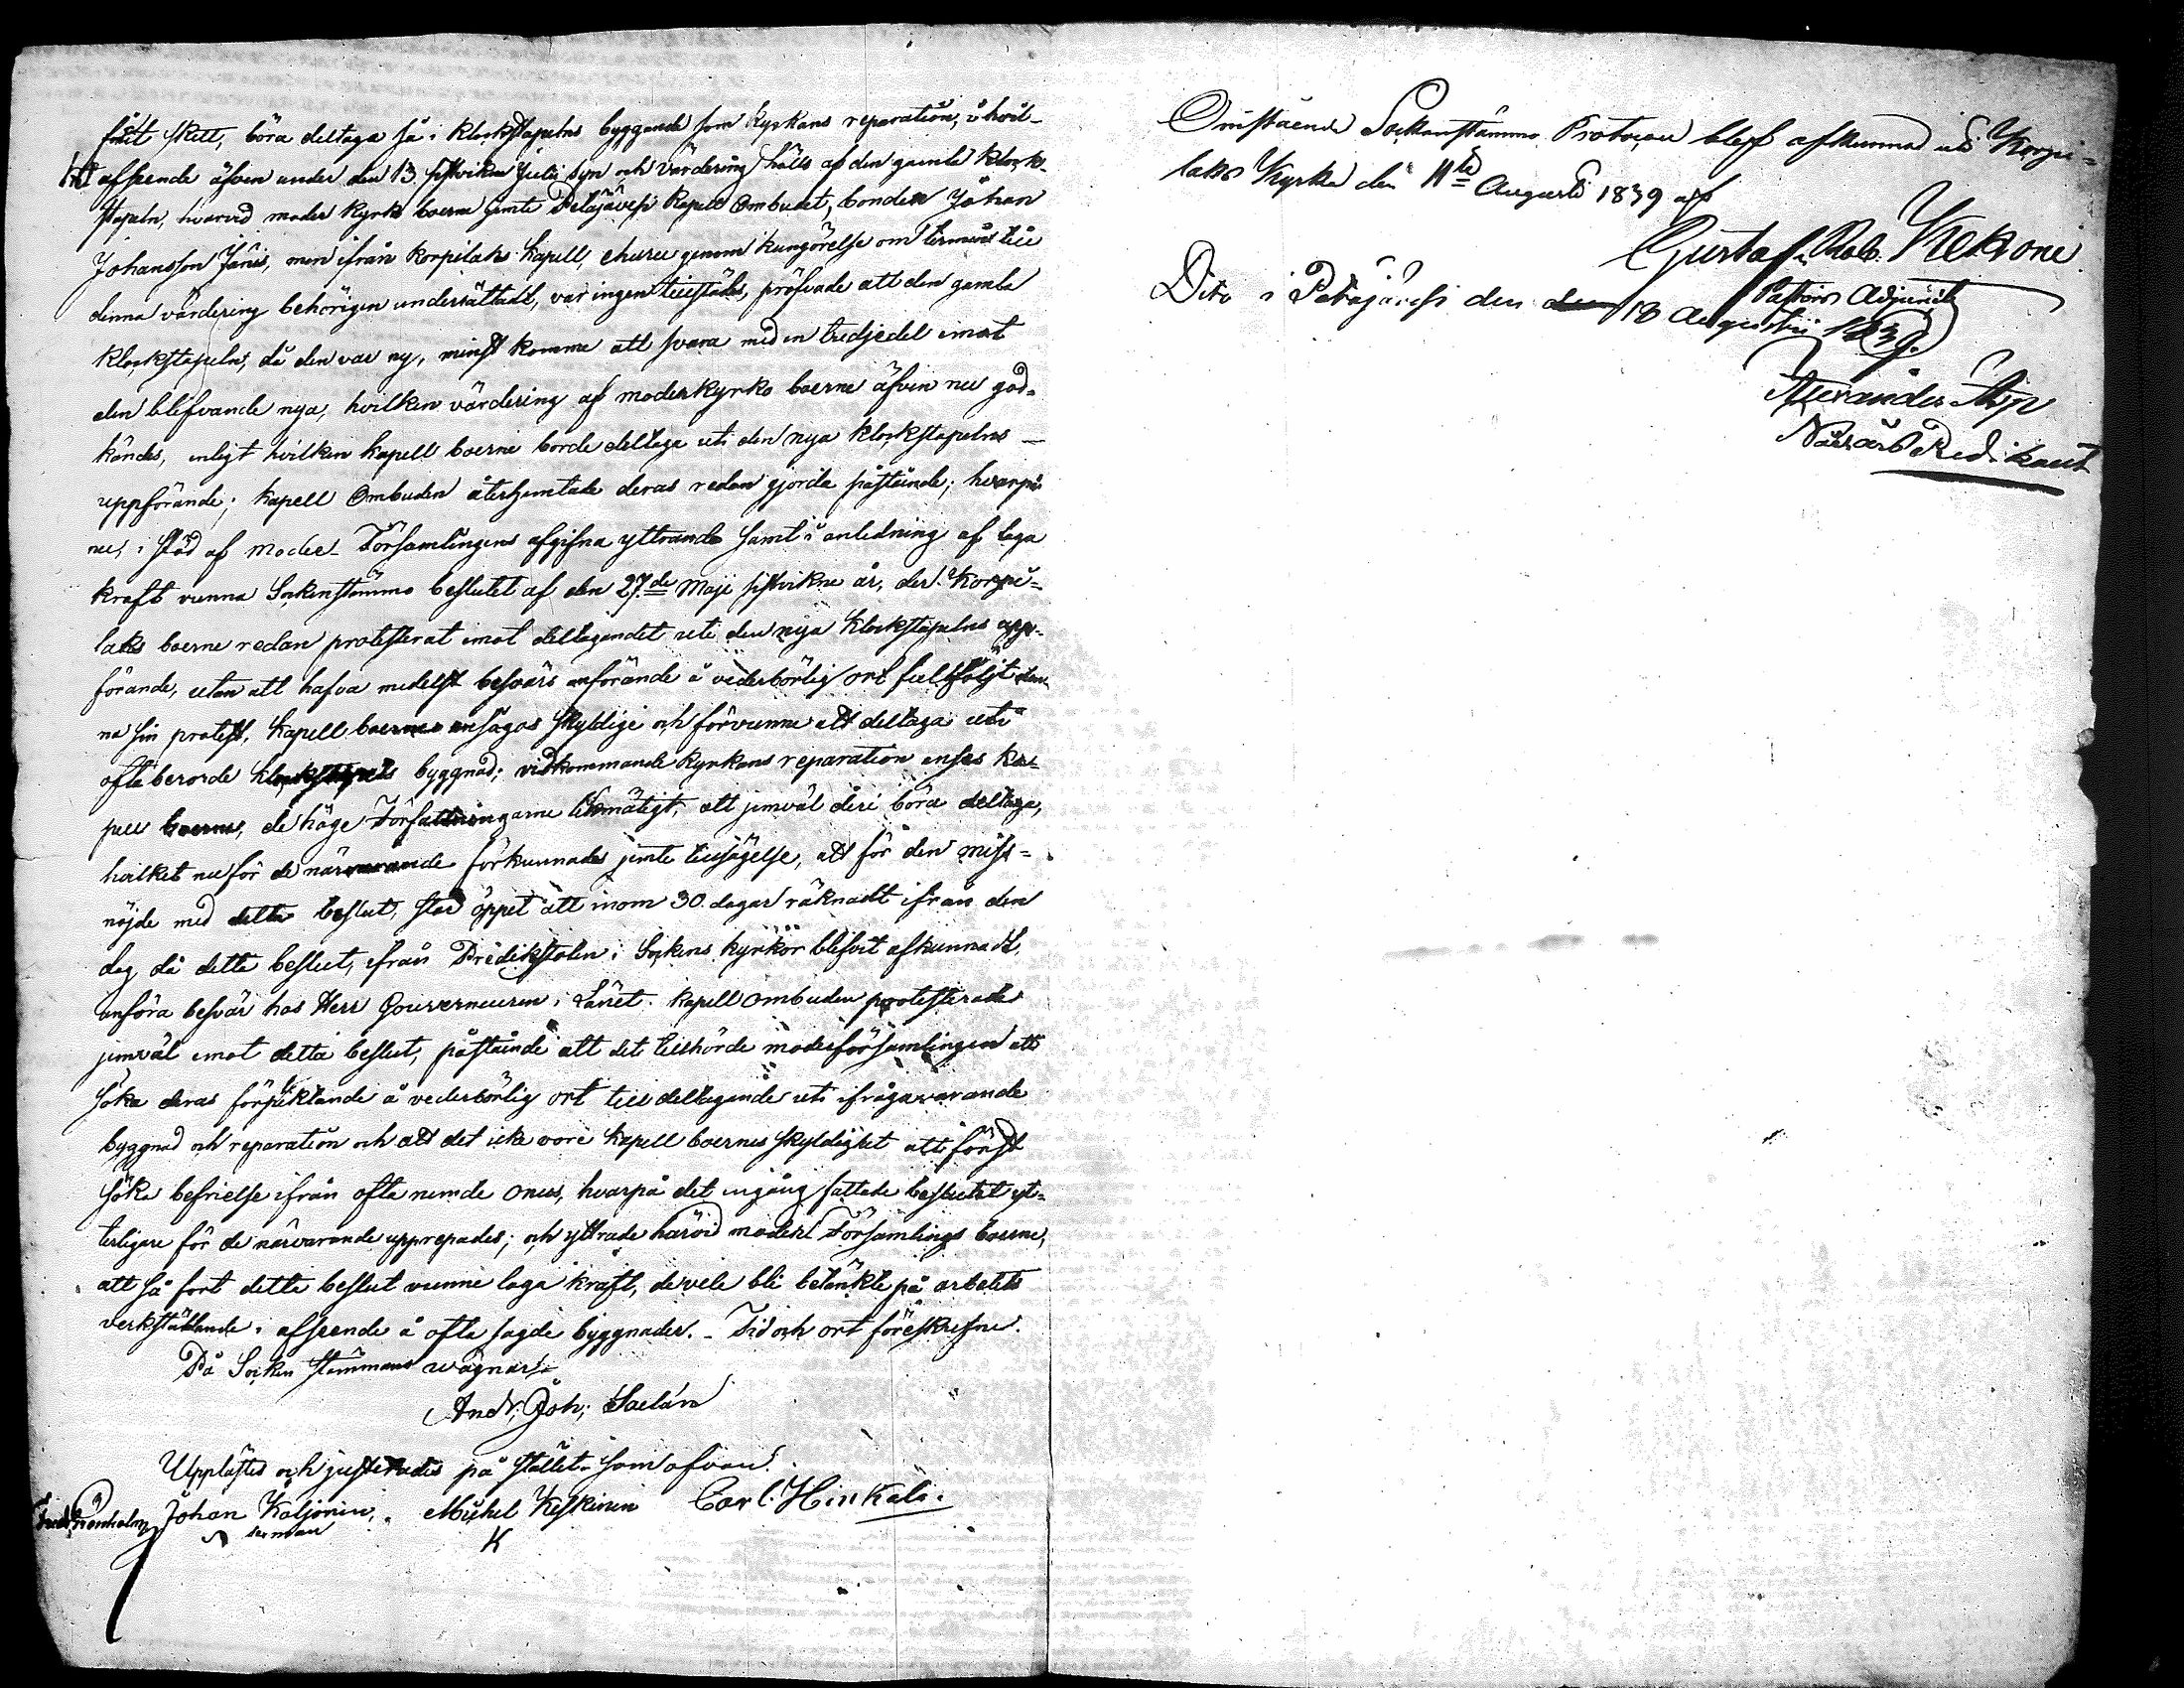 fält skett, böra deltaga så i klockstapelns byggande som kyrkans reparation, i hvil-
ket afseende äfven under den 13. sistvikne Julii syn och värdering hålls af den gamla klock-
stapeln, hvarvid moder kyrko boerne jemte Petäjävesi Kapell Ombudet, bonden Johan
Johansson Jänis, men ifrån Korpilaks Kapell, ehuru genom kungörelse om termin till
denna värdering behörigen underrättadt, var ingen tillstädes, pröfvade att den gamla
klockstapeln, då den var ny, minst komma att svara mot en tredjedel emot
den blifvande nya, hvilken värdering af moderkyrko boerne äfven nu god-
kändes, enligt hvilken kapell boerne borde deltaga uti den nya klockstapelns
uppförande; kapell Ombuden återhemtade deras redan gjorda påstående; hvarpå
nu, i stöd af Moder-Församlingens afgifna yttrande samt i anledning af laga
kraft vunna Sockenstämmo beslutet af den 27de Maji sistvikne år, der Korpi-
laks boerne redan protesterat emot deltagandet uti den nya klockstapelns upp-
förande, utan att hafva medelst besvärs anförande å vederbörlig ort fullföljt den-
na sin protest, kapell boerne ansågos skyldige och förvunne att deltaga uti
ofta berörde klockstapels byggnad; vidkommande kyrkans reparation anses ka-
pell boerne, de höge Författningarne likmätigt, att jemväl deri böra deltaga,
hvilket nu för de närvarande förkunnades jemte tillsägelse, att för den miss-
nöjde med detta beslut, står öppet att inom 30 dagar räknadt ifrån den
dag då detta beslut, ifrån Predikstolen i Sockens kyrkor blifvit afkunnadt,
anföra besvär hos Herr Gouverneuren i Länet. Kapell Ombuden protesterade
jemväl emot detta beslut, påstående att det tillhörde moderförsamlingen att
söka deras förpliktande å vederbörlig ort till deltagande uti ifrågavarande
byggnad och reparation och att det icke vore kapell boernes skyldighet att först
söka befrielse ifrån ofta nemde onus, hvarpå det engång fattade beslutet yt-
terligare för de närvarande upprepades; och yttrade härvid moder Församlings boerne,
att så fort detta beslut vunne laga kraft, de vele bli betänkte på arbetets
verkställande i afseende å ofta sagde byggnader. - Tid och ort föreskrefne.
På Socken stämmans wägnar
Andr. Joh. Saelan
Upplästes och justerades på stället som ofvan.
Johan Kaljonin, Michel Keskinen Carl Hinkala.
K
Omstående Sockenstämmo Protocoll blef afkunnad uti Korpi-
laks Kyrka den 11te Augusti 1839 af
Gustaf Rob. Kekone
Pastors Adjunct
Dito i Petäjävesi den 18 Augusti 1839.
Alexander Alp
Nådårs Predikant